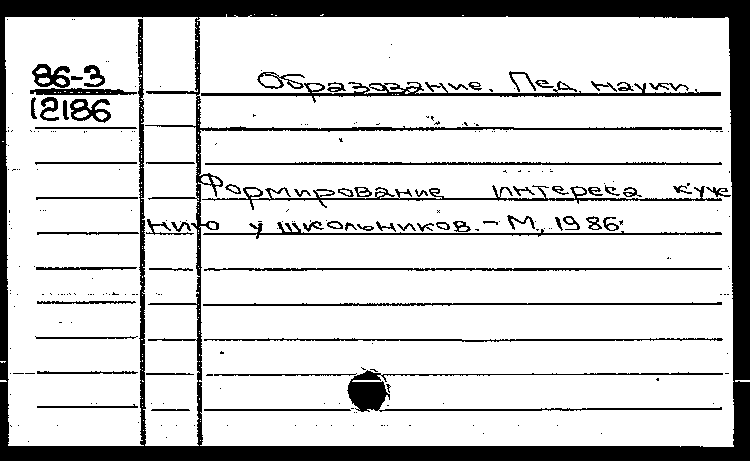 86-3 Образование. Пед. науки.
12186
Формирование интереса к уче
нию у школьников. - М, 1986.